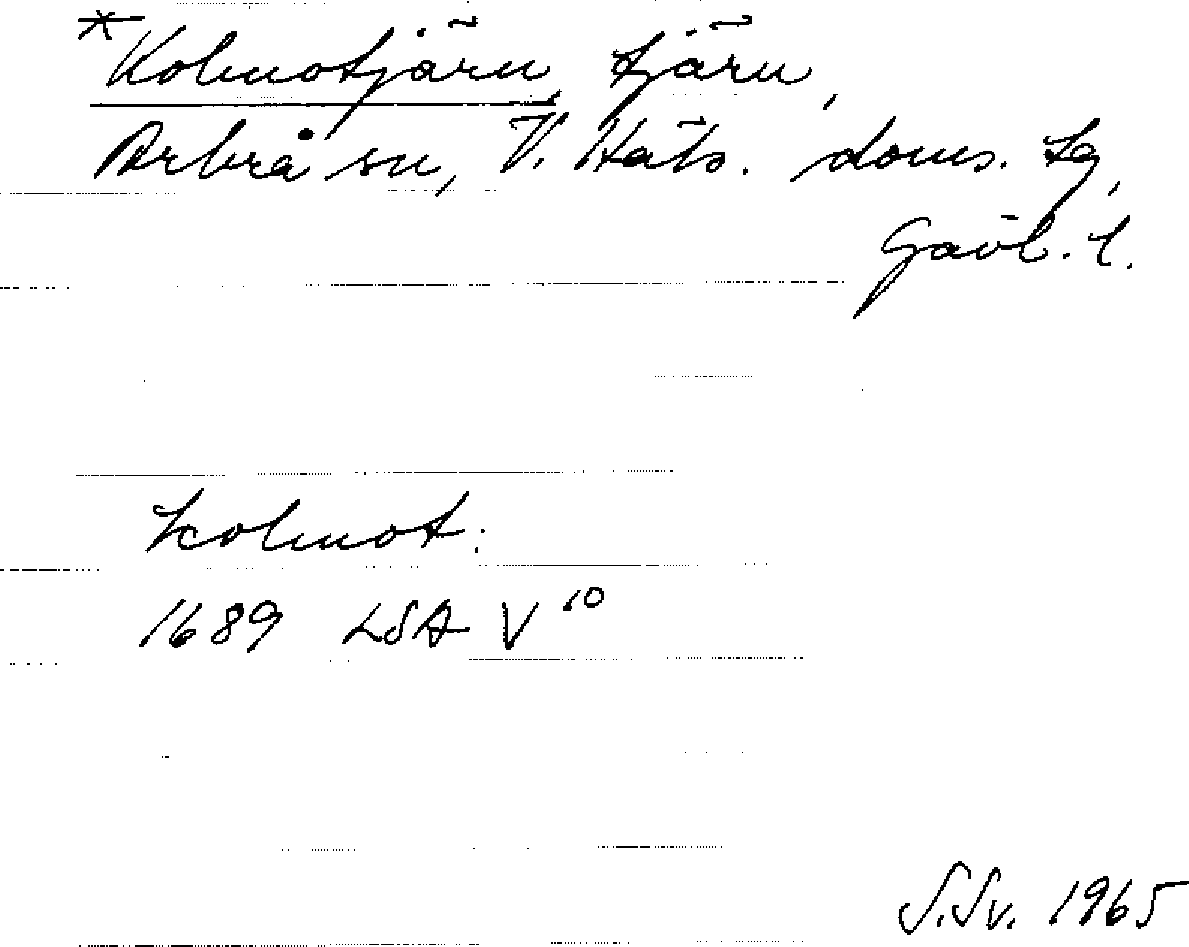 *Kolmotjärn, tjärn,
Arbrå sn, V. Häls. doms. lg,
Gävl. l.
kolmot:
1689 LSA V 10
S.Sv. 1965